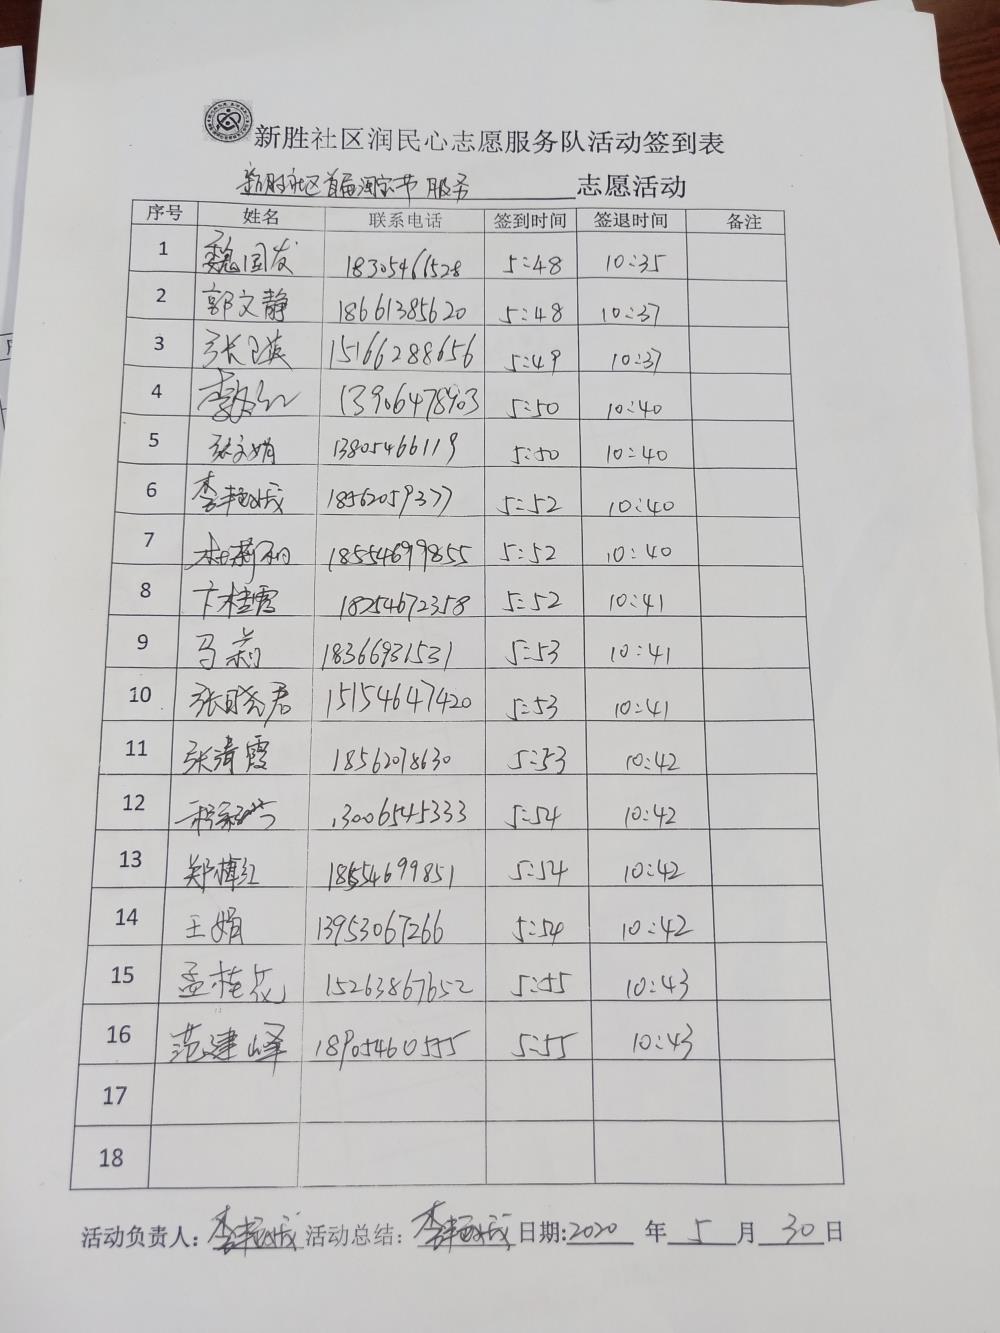 新胜社区润民心志愿服务队活动签到表
新胜社区首届淘宝节服务 志愿活动
序号 姓名 联系电话 签到时间 签退时间 备注
1 魏国友 18305466528 5:48 10:35
2 郭文静 18661385620 5:48 10:37
3 张卫英 15166288656 5:49 10:37
4 13906478903 5:50 10:40
5 张文娟 13805466119 5:50 10:40
6 李艳娥 18562059377 5:52 10:40
7 杜莉莉 18554699855 5:52 10:40
8 卞桂霞 18254672358 5:52 10:41
9 马莉 18366931531 5:53 10:41
10 张晓君 15154647420 5:53 10:41
11 张清霞 18562078630 5:53 10:42
12 13006545333 5:54 10:42
13 郑梅红 18554699851 5:54 10:42
14 王娟 13953067266 5:54 10:42
15 孟桂花 15263867652 5:55 10:43
16 范建峰 18905460555 5:55 10:43
17
18
活动负责人: 李艳娥 活动总结: 李艳娥 日期:2020 年 5 月 30 日